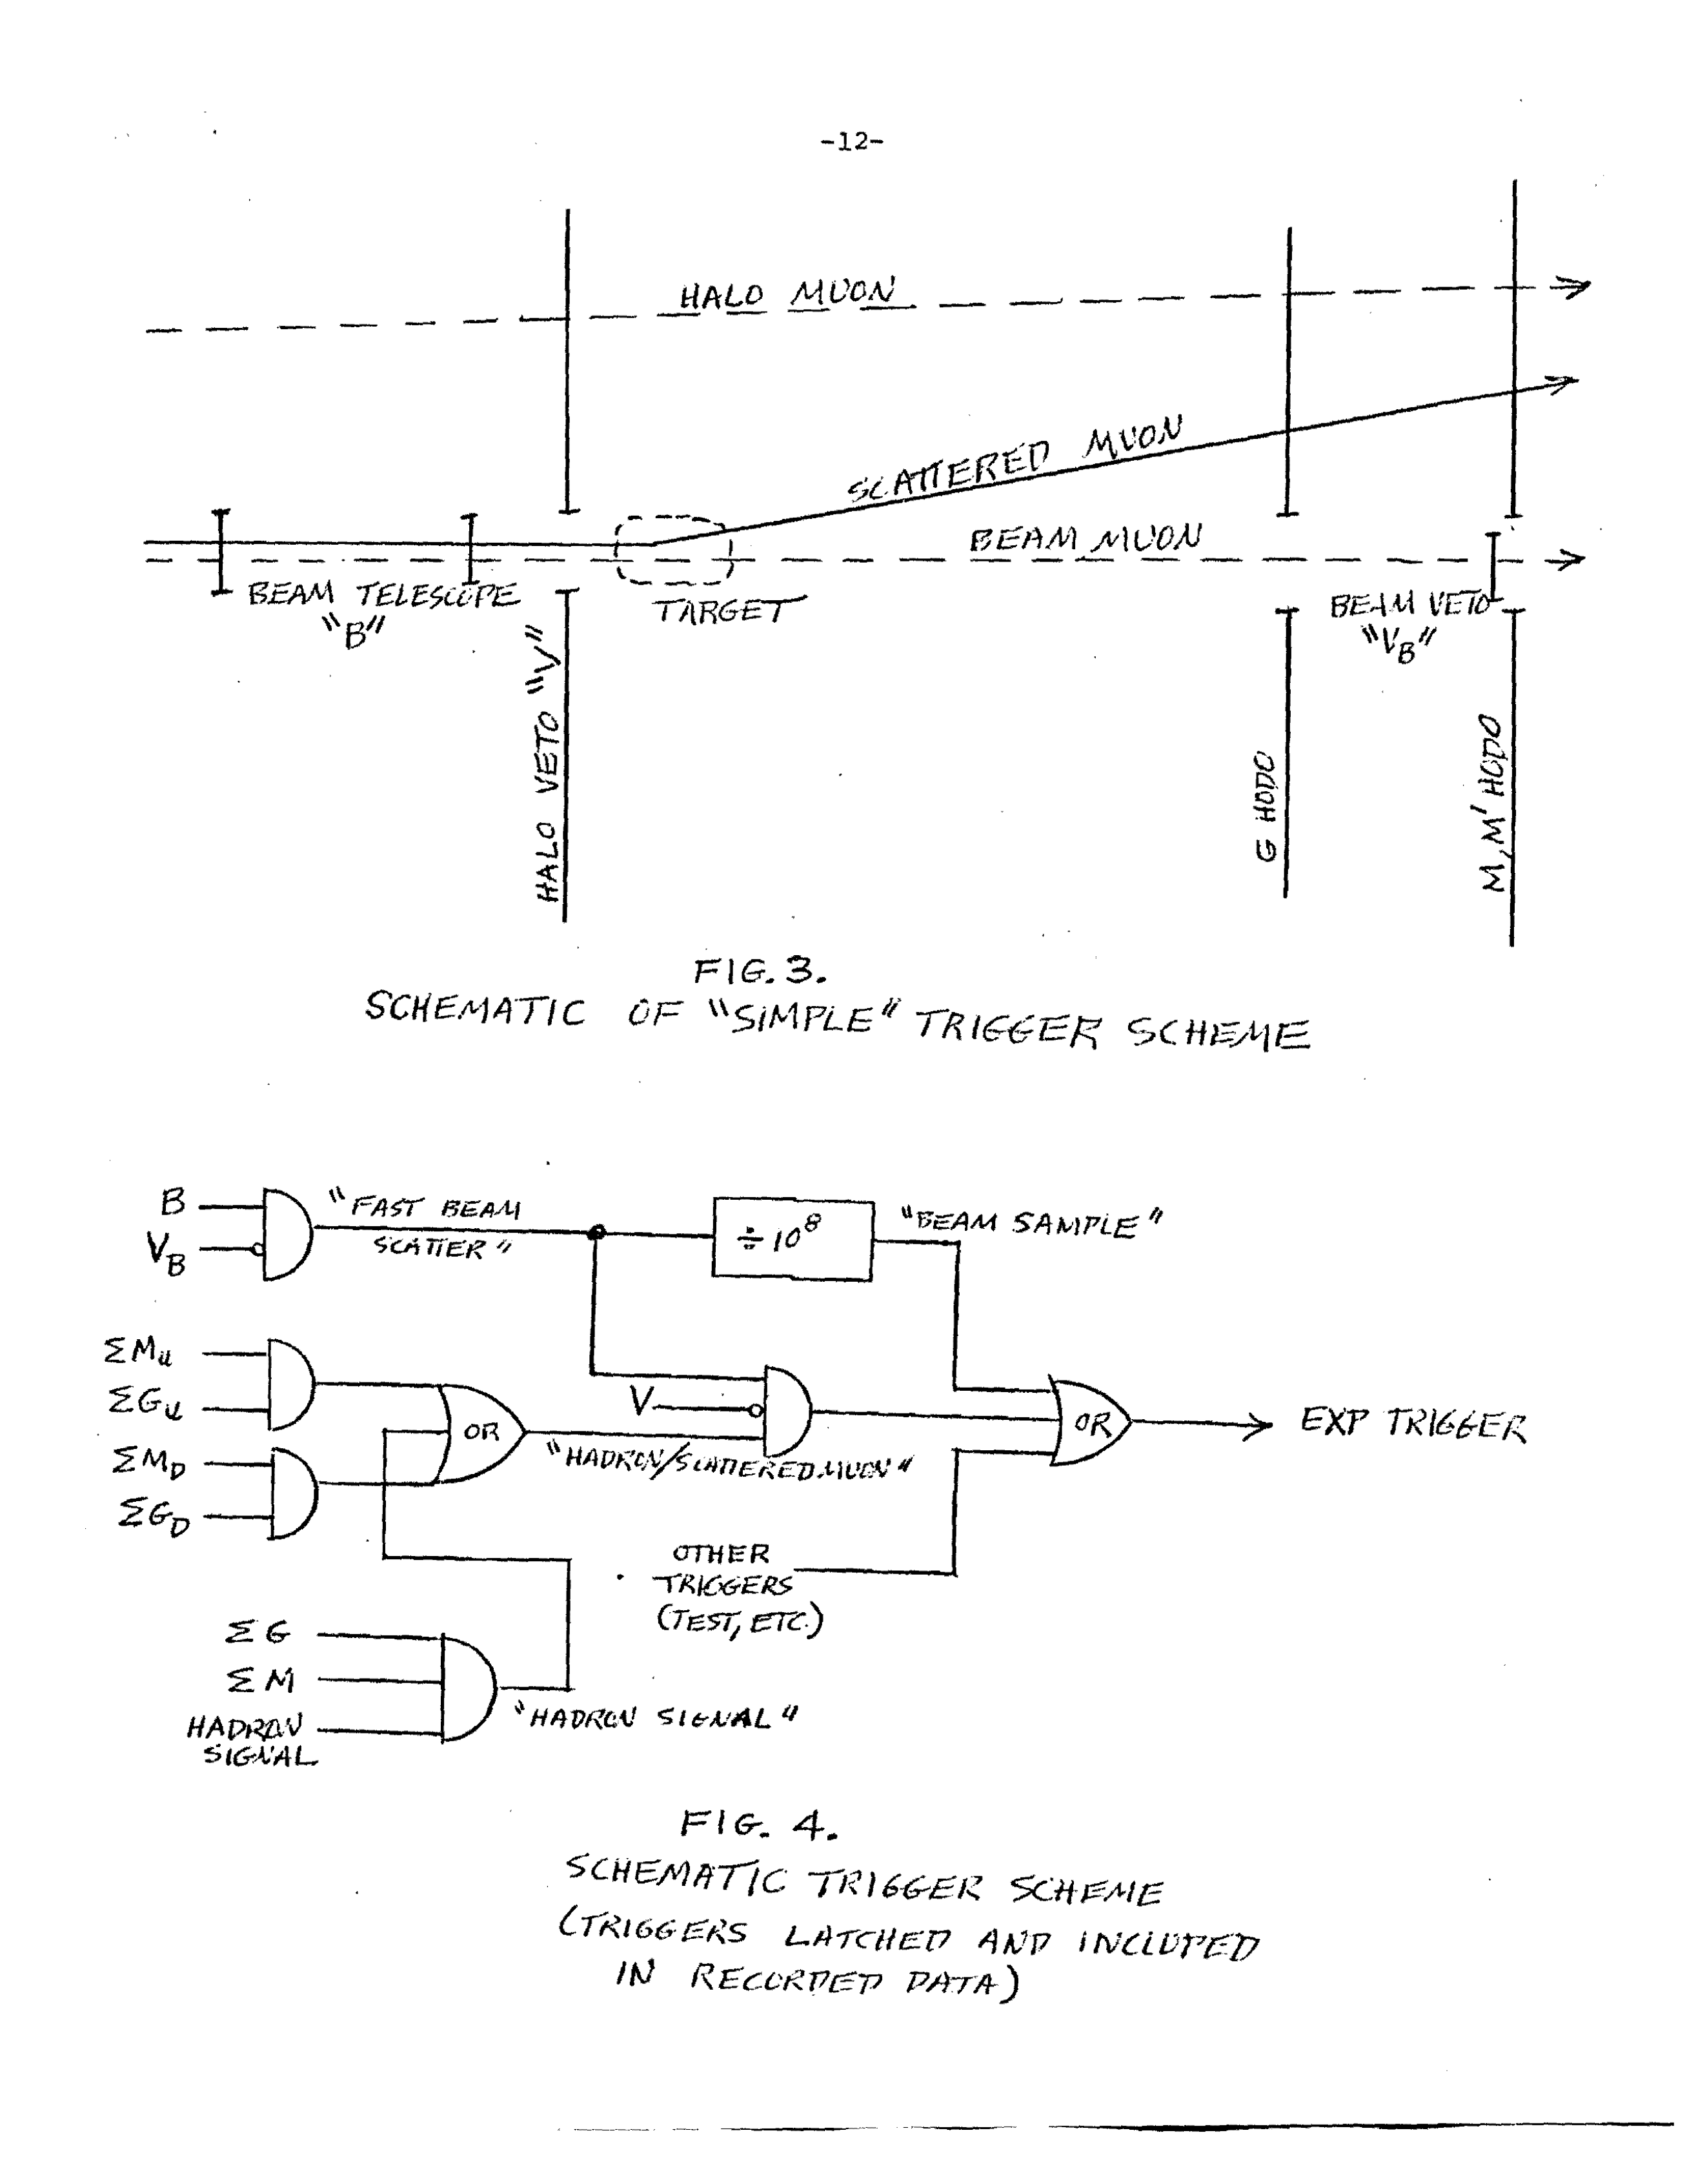 -12-
HALO MUON
SCATTERED MUON
BEAM MUON
BEAM TELESCOPE
"B"
TARGET
BEAM VETO
"V_B"
HALO VETO "V"
G HODO
M, M' HODO
FIG. 3.
SCHEMATIC OF "SIMPLE" TRIGGER SCHEME
B
V_B
"FAST BEAM
SCATTER"
÷ 10⁸
"BEAM SAMPLE"
ΣM_U
ΣG_U
ΣM_D
ΣG_D
OR
V
"HADRON/SCATTERED MUON"
OR
EXP TRIGGER
OTHER
TRIGGERS
(TEST, ETC.)
ΣG
ΣM
HADRON
SIGNAL
"HADRON SIGNAL"
FIG. 4.
SCHEMATIC TRIGGER SCHEME
(TRIGGERS LATCHED AND INCLUDED
IN RECORDED DATA)